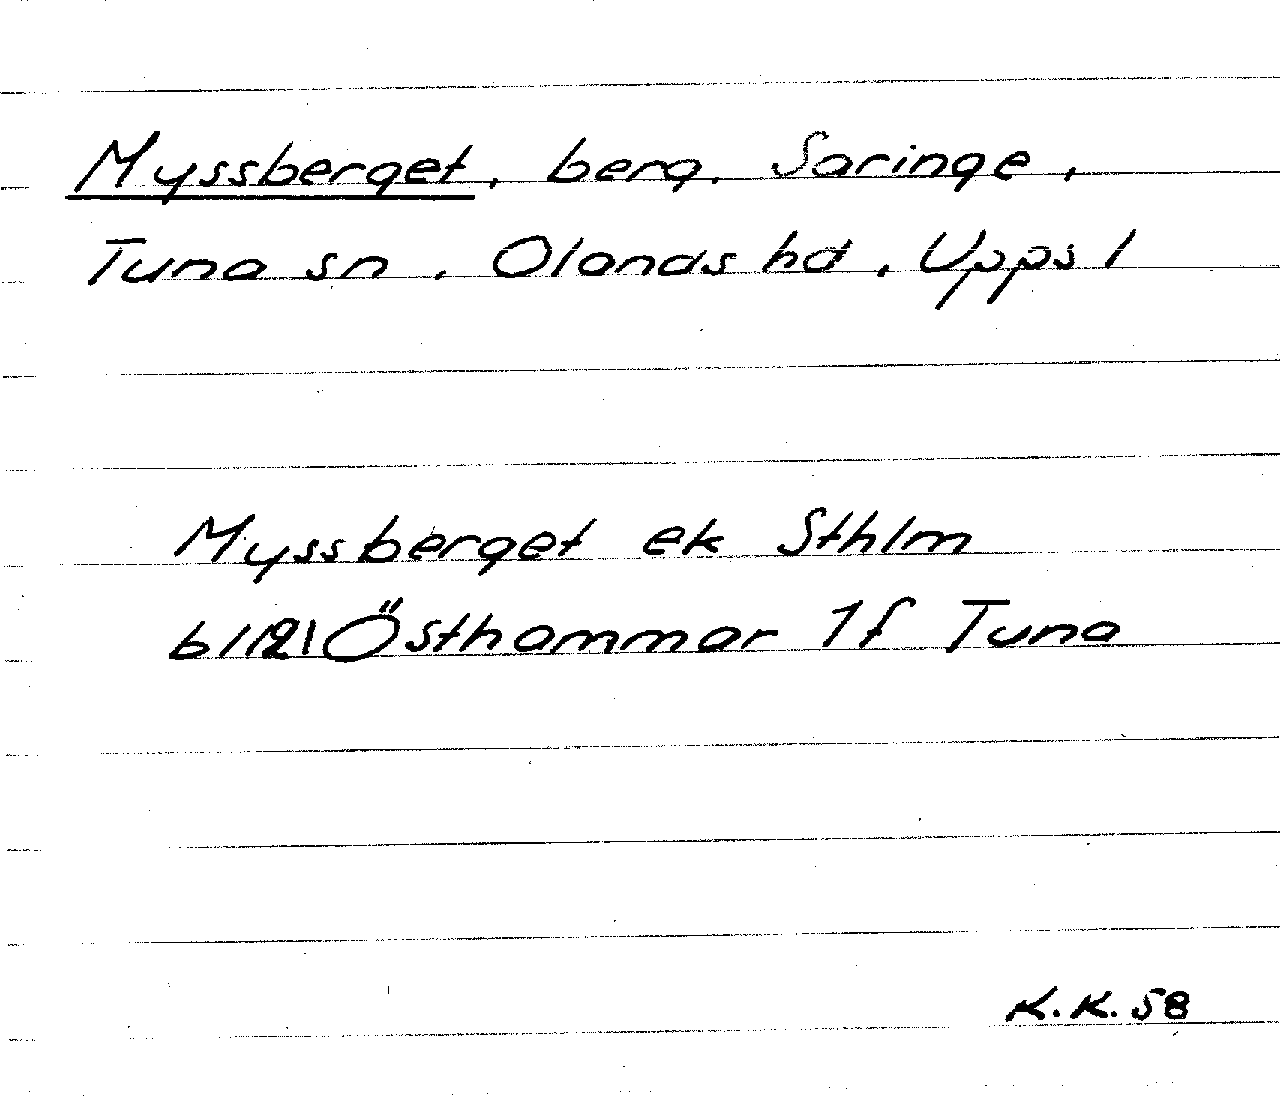 Myssberget, berg, Saringe,
Tuna sn, Olands hd, Upps l
Myssberget ek Sthlm
bl 121 Östhammar 1f Tuna
K.K. 58